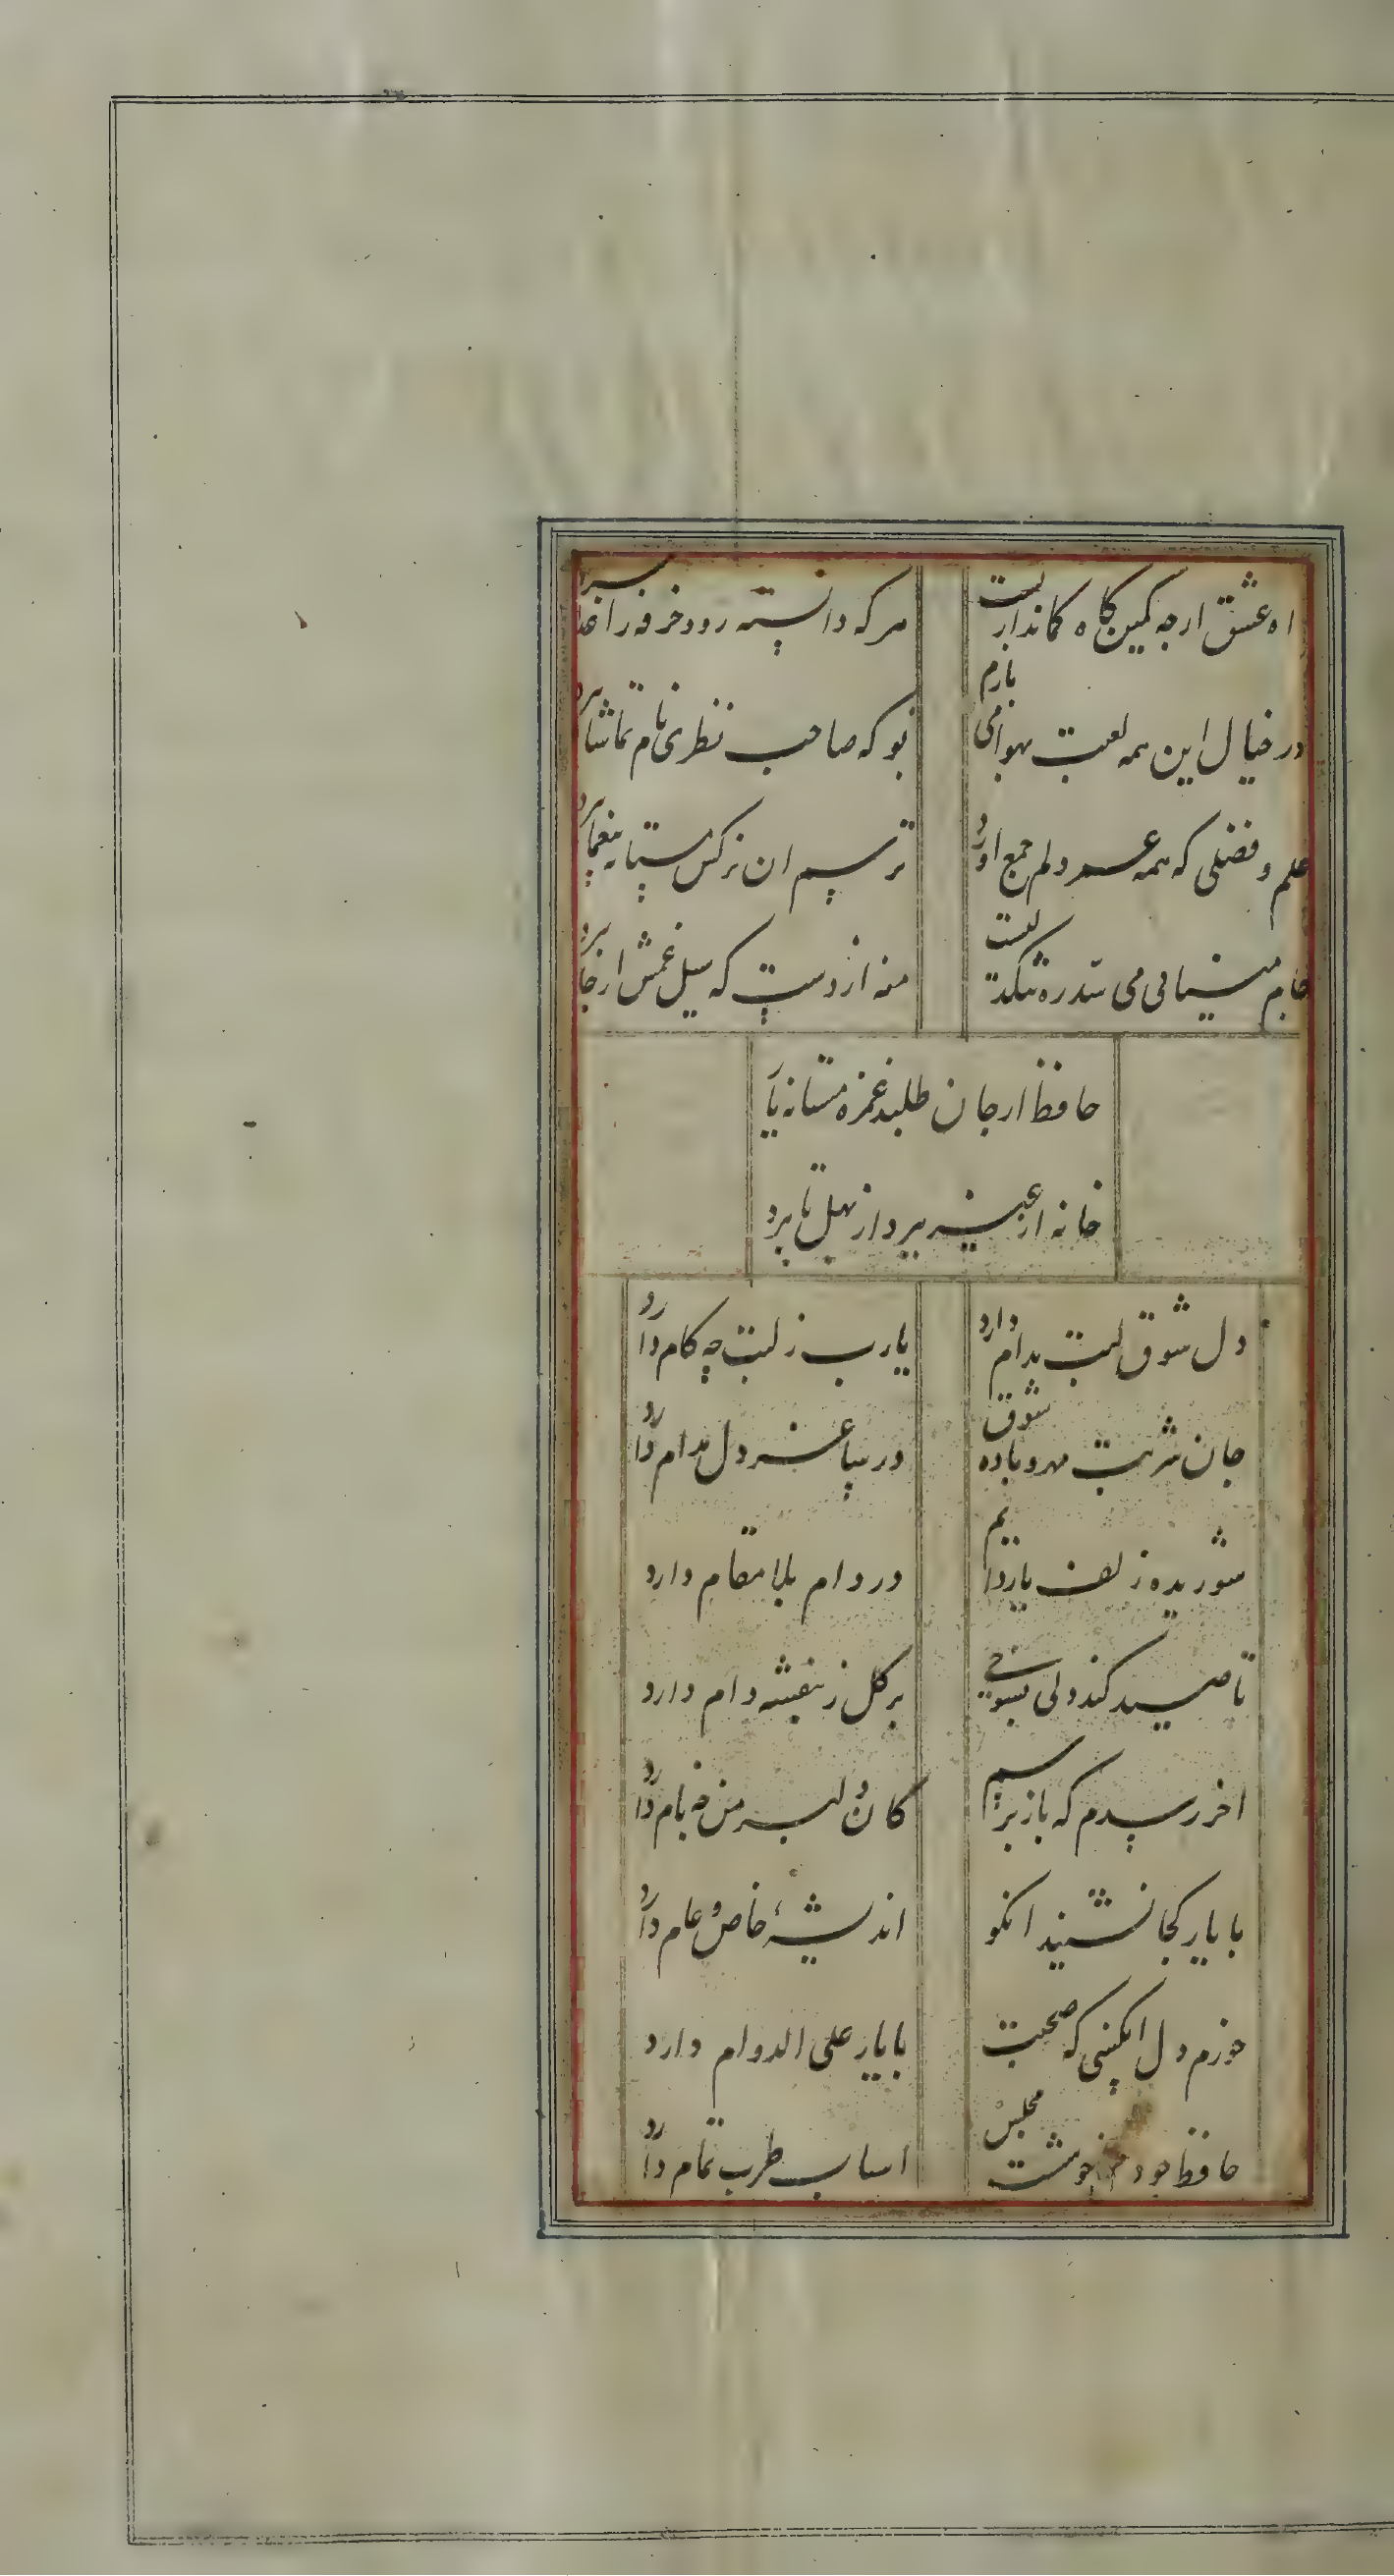 اه عشق ارجه کمین کاه کماندارانست
هرکه دانسته رود خرفه راعدا ببرد
در خیال این همه لعبت بهوا می بازم
بو که صاحب نظری نام تماشا ببرد
علم و فضلی که همه عمر دلم جمع اورد
ترسم ان نرکس مستانه بیغما ببرد
جام مینایی می سد ره تنکدلیست
منه از دست که سیل غمش از جا ببرد
حافظ ار جان طلبد غمزه مستانه یار
خانه از غیر بپرداز بهل تا ببرد
دل شوق لبت مدام دارد
یارب ز لبت چه کام دارد
جان شربت مهر و باده شوق
در ساغر دل مدام دارد
شوریده زلف یار دایم
در دام بلا مقام دارد
تا صید کند دلی بشوخی
بر کل ز بنفشه دام دارد
اخر رسدم که باز پرسیم
کان دلبر من چه نام دارد
با یار کجا نشیند انکو
اندیشهٔ خاص و عام دارد
خورم دل انکسی که صحبت
با یار علی الدوام دارد
حافظ چو دمی خوشست مجلس
اساب طرب تمام دارد